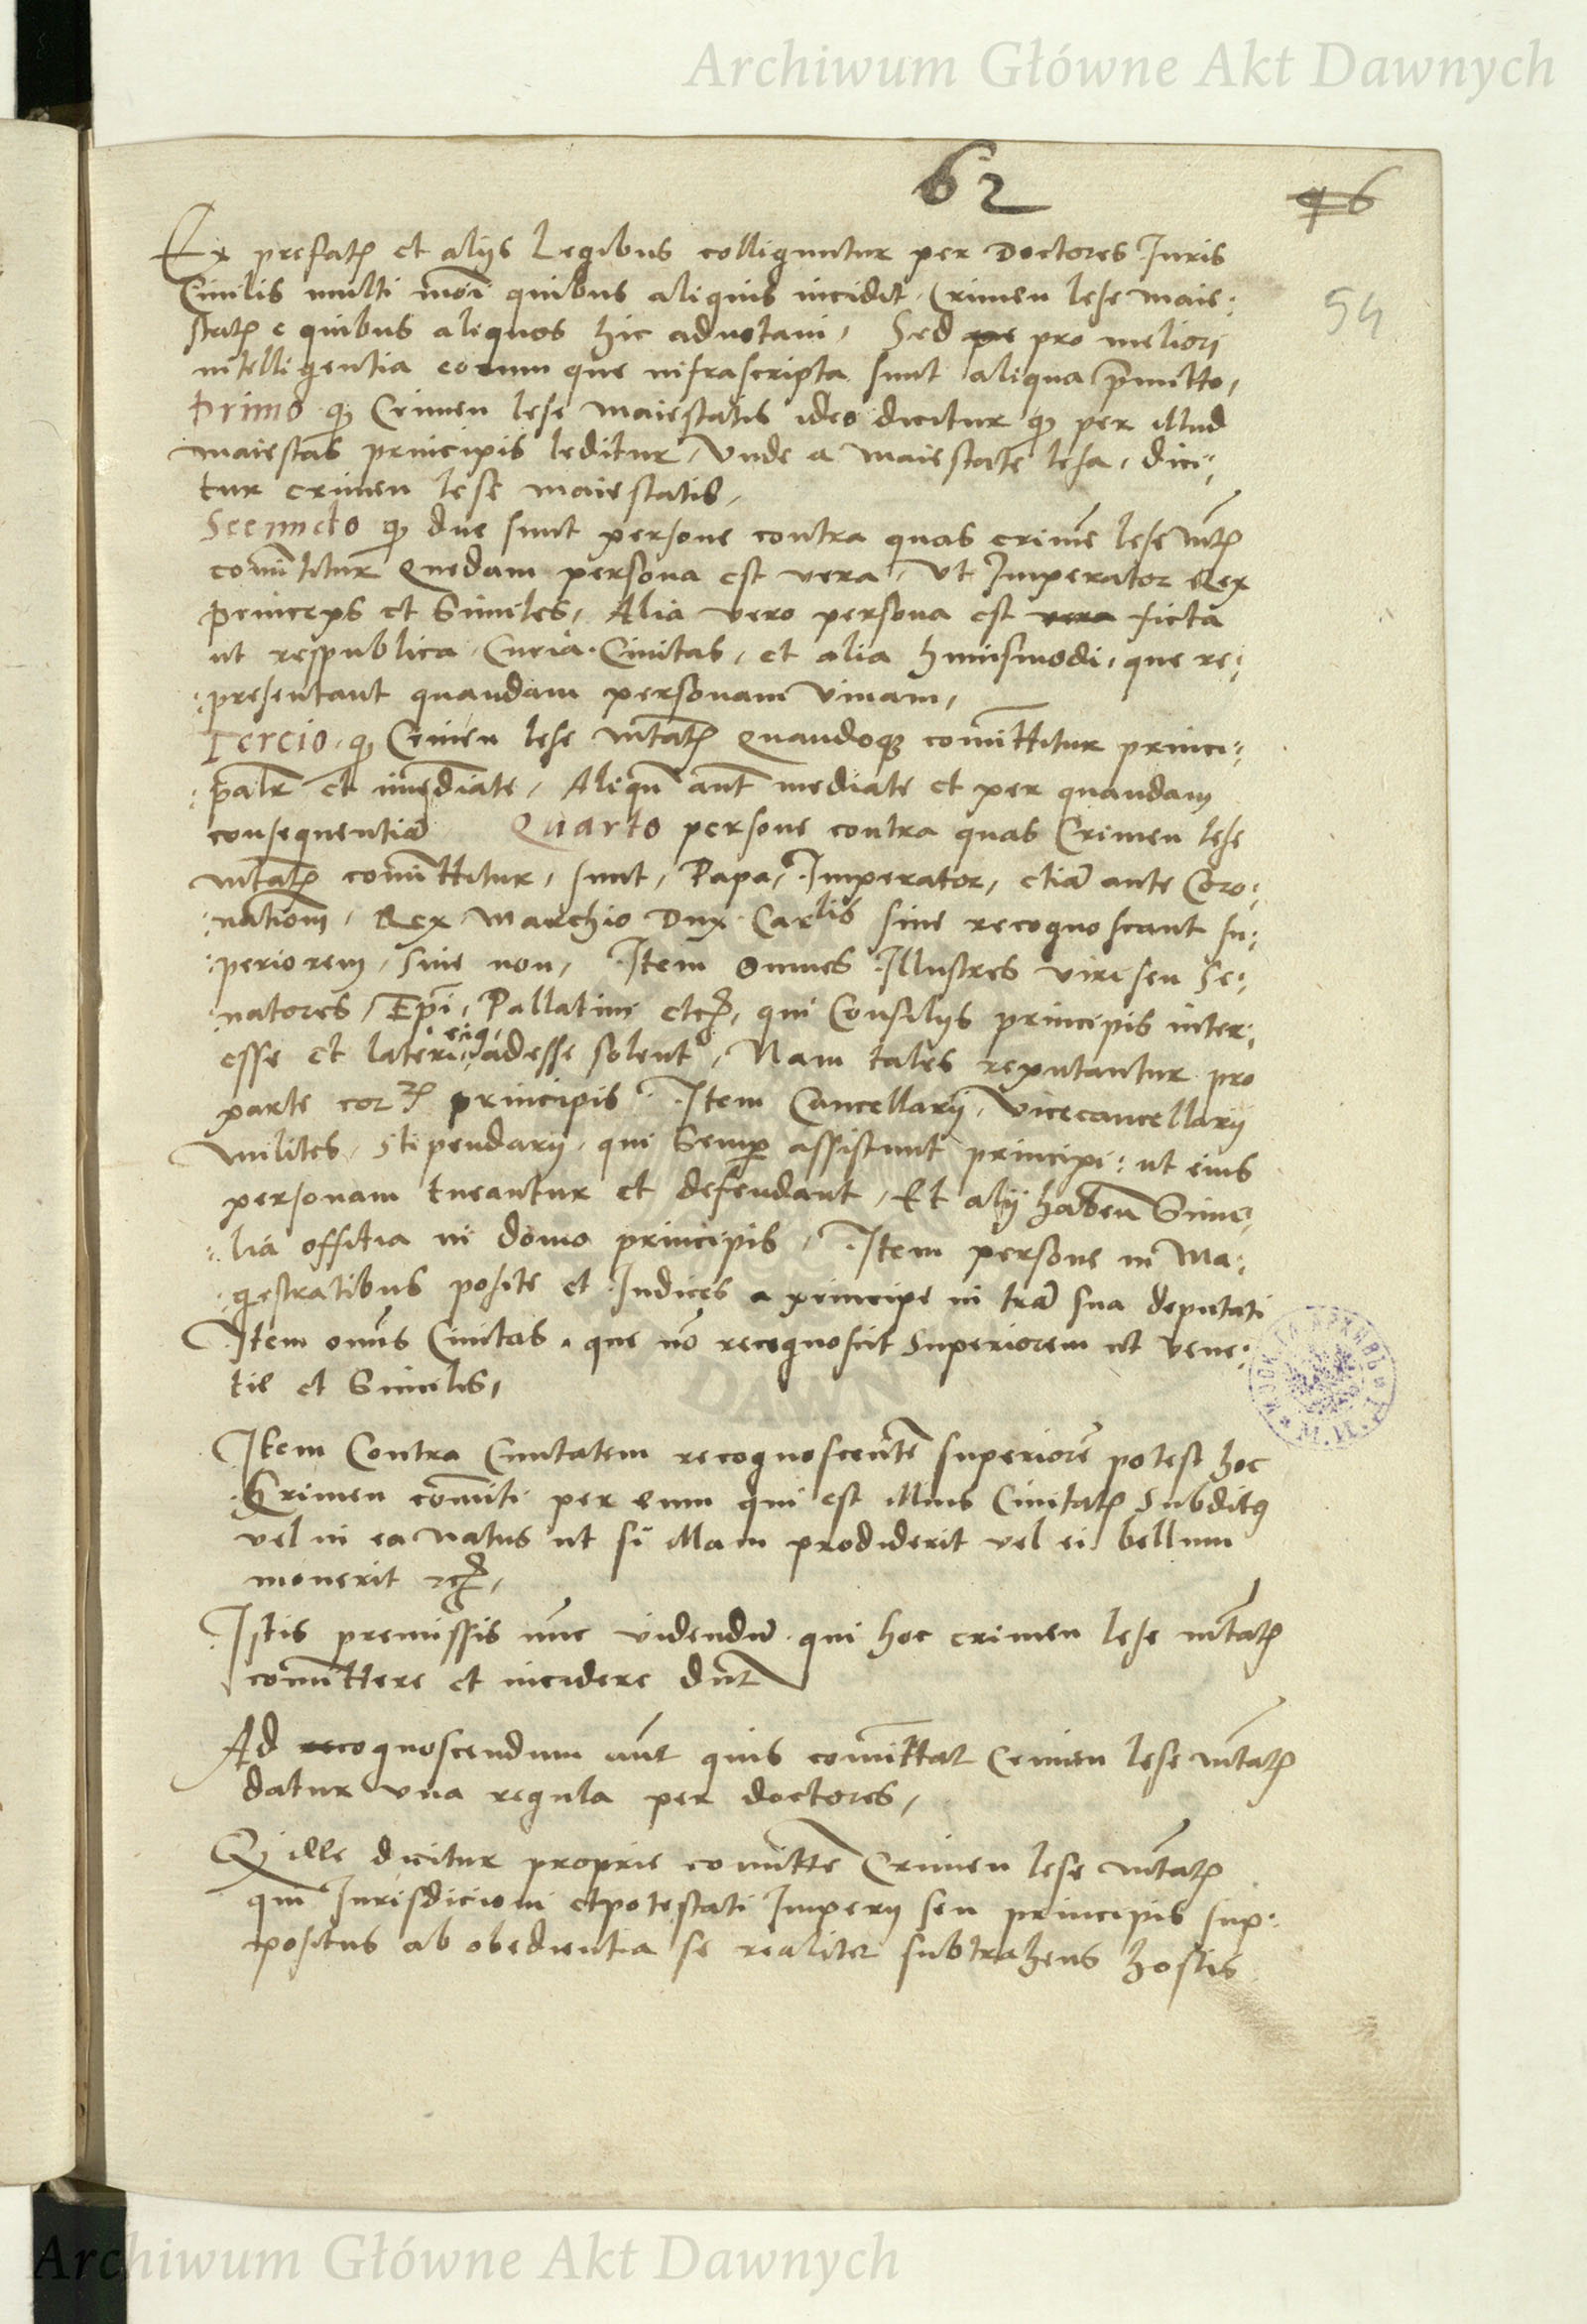 Archiwum Główne Akt Dawnych
62
46
54
Ex prefatꝭ et alijs Legibus colliguntur per Doctores Iuris
Ciuilis multi modi quibus aliquis incidit Crimen lese maie:
statꝭ e quibus aliquos hic adnotaui, Sed pe pro meliori
intelligentia eorum que infrascripta sunt aliqua p̄mitto,
Primo qꝫ Crimen lese Maiestatis ideo dicitur qꝫ per illud
maiestas principis leditur, Vnde a Maiestate lesa, dici:
tur crimen lese maiestatis,
Secundo qꝫ due sunt persone contra quas crimē lese Mtꝭ
com̄ititur Quedam persona est vera, Vt Imperator Rex
princeps et Similes, Alia vero persona est vera ficta
ut respublica, Curia. Ciuitas, et alia huiusmodi, que re:
:presentant quandam personam viuam,
Tercio, qꝫ Crimen lese Mtatꝭ Quandoqꝫ com̄ittitur princi:
:palr̄ et imediate, Aliqn̄ aut̄ mediate et per quandam
consequentiā Quarto persone contra quas Crimen lese
Mtatꝭ com̄ittitur, sunt, Papa, Imperator, etiā ante Coro:
:nationem, Rex Marchio Dux Carlis siue recognoscant su:
:periorem, siue non, Item Omnes Illustres viri seu Se:
:natores, Ep̄i, Pallatini etcꝭ, qui Consilijs principis inter:
esse et lateri eiꝰ adesse solent, Nam tales reputantur pro
parte corꝑis principis Item Cancellarij, Vicecancellarij
Milites, Stipendarij, qui Semꝑ assistunt principi: ut eius
personam tueantur et defendant, Et alij haben̄ Simi:
:lia offitia in domo principis, Item persone in Ma:
:gestratibus posite et Iudices a principe in trā sua deputati
Item om̄is Ciuitas, que nō recognoscit Superiorem ut Vene:
tie et Similis,
Item Contra Ciuitatem recognoscentē superiorē potest hoc
Crimen com̄iti per eum qui est illius Ciuitatꝭ Subditꝰ
vel in ea natus ut si illam prodiderit vel ei bellum
mouerit etcꝭ,
Istis premissis nūc videndū qui hoc crimen lese mtatꝭ
com̄ittere et incidere dn̄r
Ad recognoscendum aūt quis com̄ittat Crimen lese Mtatꝭ
datur vna regula per doctores,
Qꝫ ille dicitur proprie com̄ittē Crimen lese Mtatꝭ
qui Iurisdicioni et potestati Imperij seu principis sup:
positus ab obedientia se realiter subtrahens hostis
Archiwum Główne Akt Dawnych